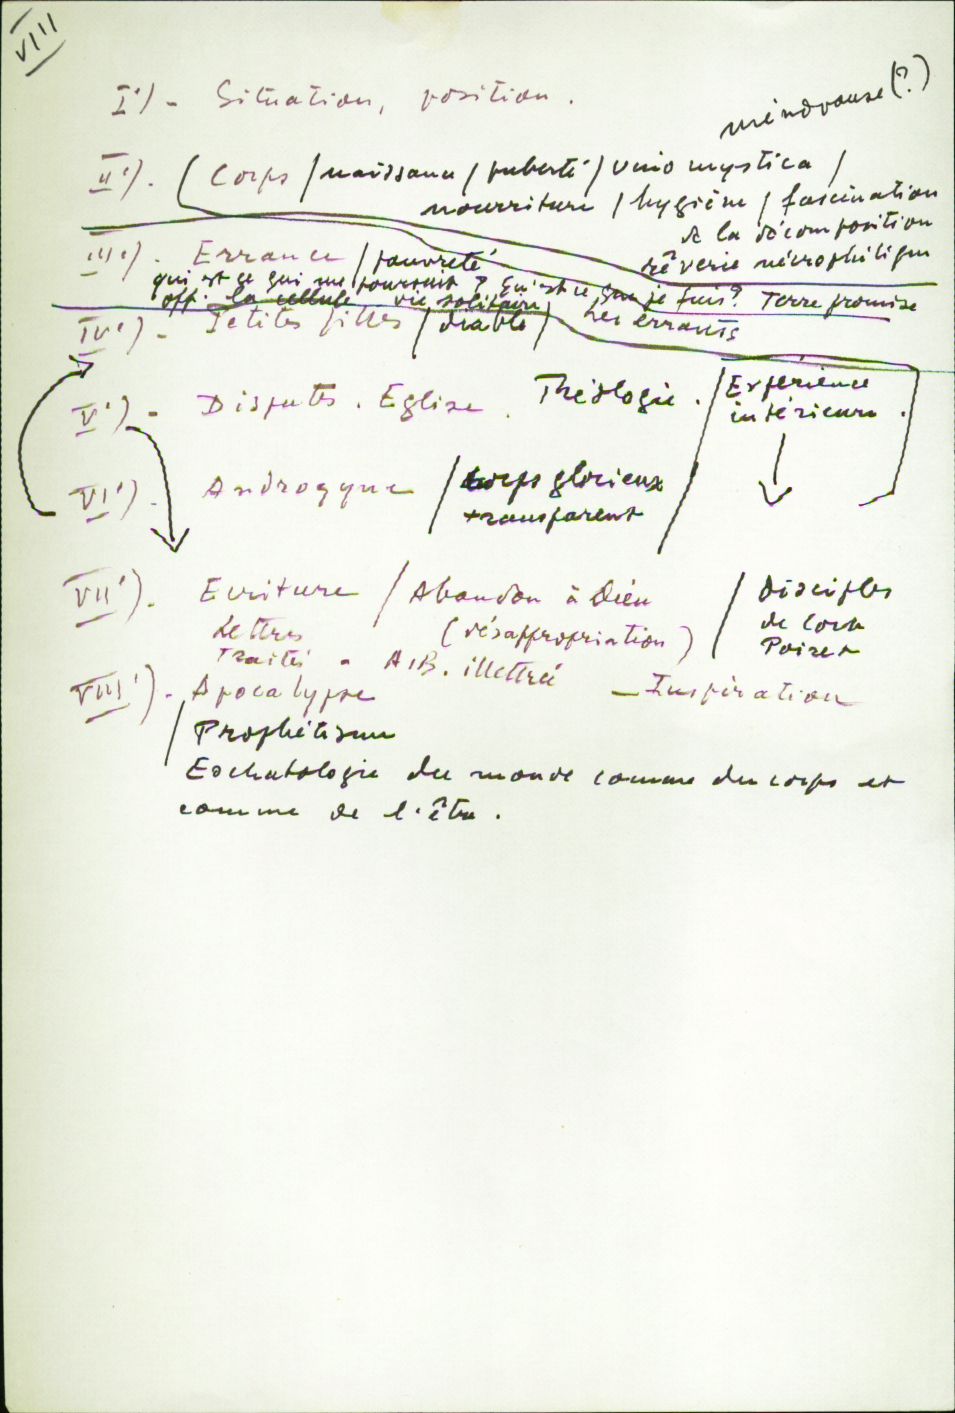 VIII
I') - Situation, position.
ménopause (?)
II'). (Corps / naissance / puberté / Unio mystica /
nourriture / hygiène / fascination
de la décomposition
rêverie nécrophilique
III'). Errance / pauvreté
qui est ce qui me poursuit ? Qu'est ce que je fuis ? Terre promise
off. la cellule vie solitaire Les errants
IV') - Petites filles / diable /
V') - Disputes. Eglise. Théologie. / Expérience
intérieure.
VI') - Androgyne / corps glorieux
transparent
VII'). Ecriture / Abandon à Dieu / Disciples
Lettres (désappropriation) de Cort
Traités - A.B. illettrée Poiret
VIII') - Apocalypse - Inspiration
/ Prophétisme
Eschatologie du monde comme du corps et
comme de l'être.